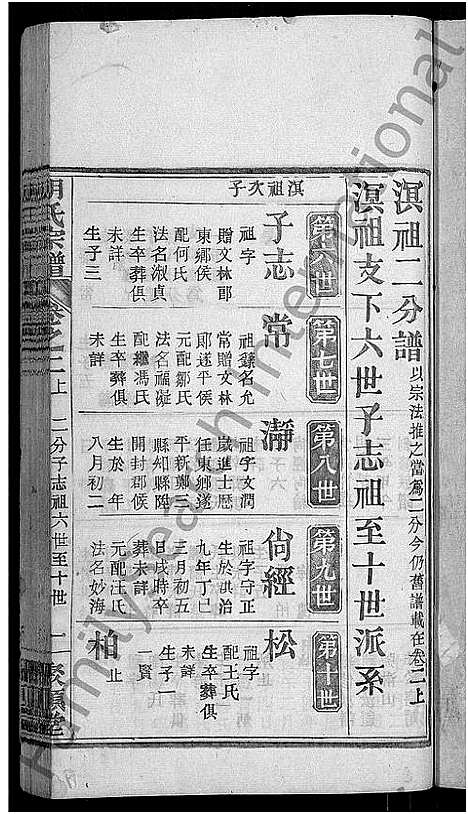 溟祖二分譜 以宗法推之當為二分今仍舊譜載在卷二上
溟祖支下六世子志祖至十世派系
溟祖次子
第六世
子志
祖字
贈文林郎
東鄉侯
配何氏
法名淑貞
生卒葬俱
未詳
生子三
第七世
常
祖錄名允
常贈文林
郎遂平侯
元配鄒氏
法名福凝
配繼馮氏
生卒葬俱
未詳
第八世
瀞
祖字文潤
歲進士歷
任東鄉遂
平新鄭三
縣知縣陞
開封郡侯
生於 年
八月初二
第九世
尙經
祖字守正
生於洪治
九年丁巳
三月初五
日戌時卒
葬未詳
元配汪氏
法名妙海
第十世
松
祖字
配王氏
生卒葬俱
未詳
生子一
一賢
止
柏
胡氏宗譜
卷之二上 二分子志祖六世至十世
二